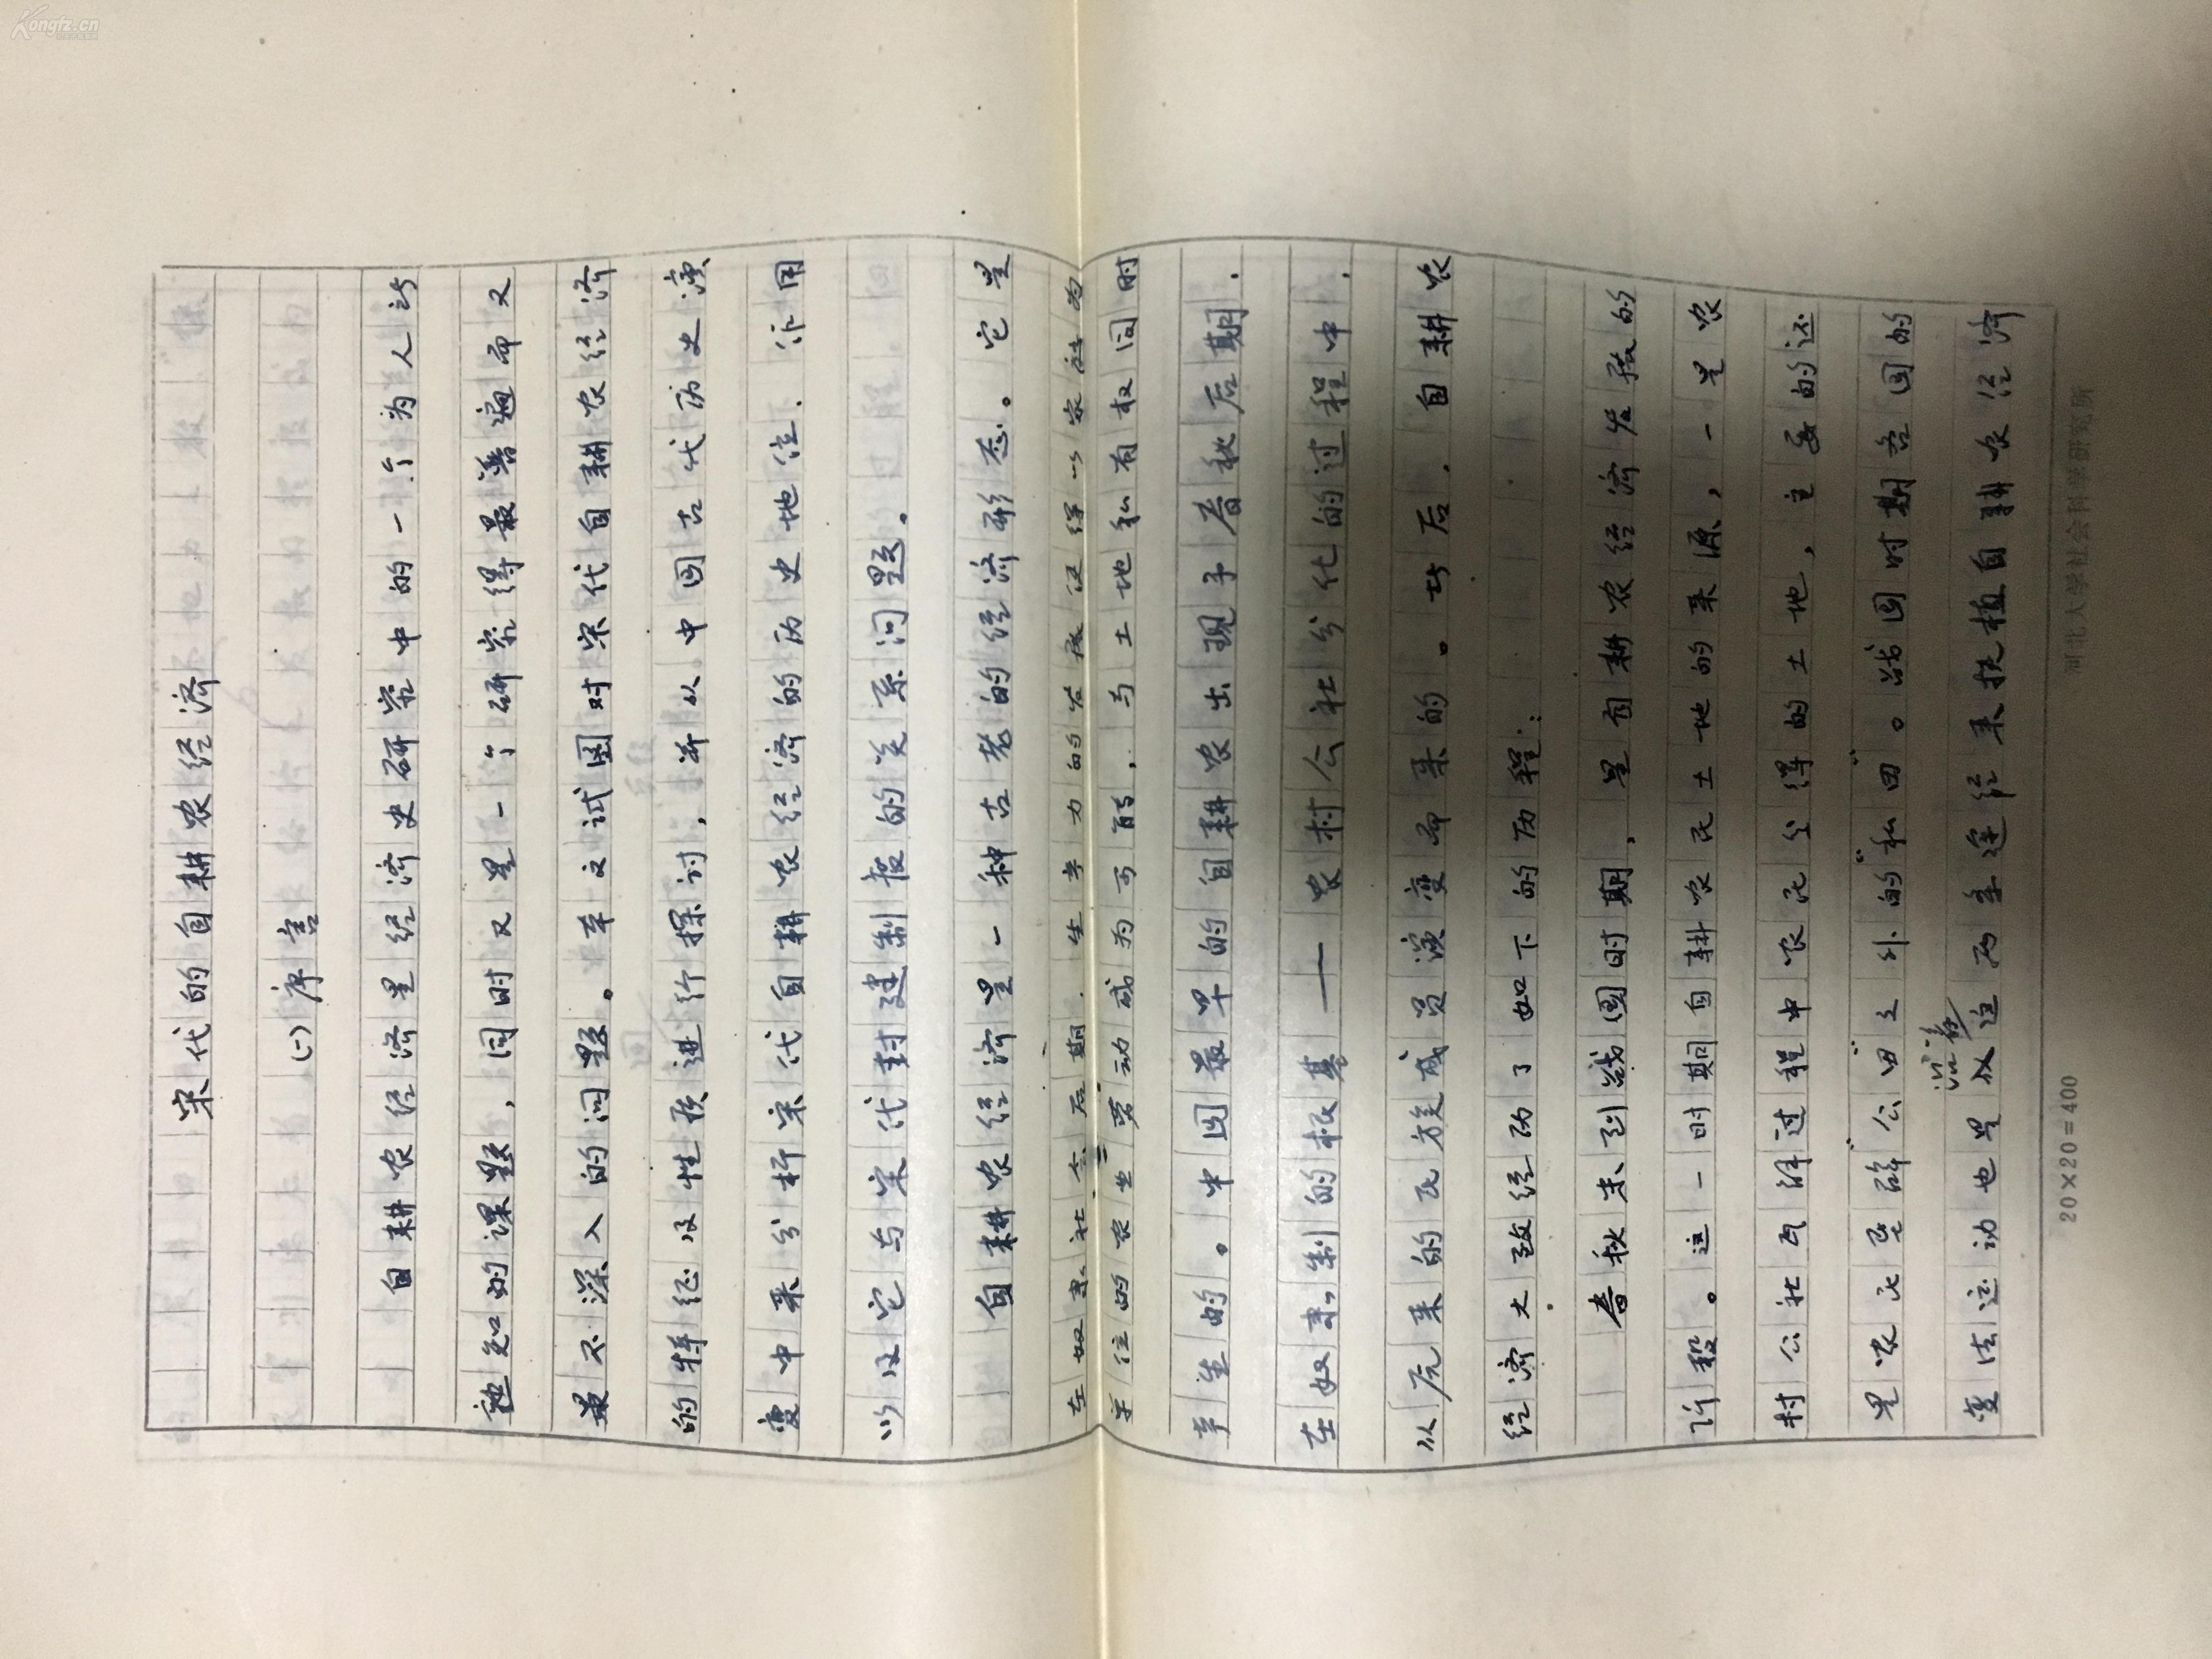 宋代的自耕农经济
(一)序言
自耕农经济是经济史研究中的一个为人所
熟知的课题，同时又是一个研究得最普遍而又
最不深入的问题。本文试图对宋代自耕农经济
的特征及性质进行探讨，并从中国古代历史演
变中来分析宋代自耕农经济的历史地位、作用
以及它与宋代封建制度的关系问题。
自耕农经济是一种古老的经济形态。它是
在奴隶社会后期，生产力的发展使得以家庭为
单位的农业劳动成为可能，与土地私有权同时
产生的。中国最早的自耕农出现于春秋后期，
在奴隶制的根基——农村公社分化的过程中，
从原来的氏族成员演变而来的。此后，自耕农
经济大致经历了如下的历程：
春秋末到战国时期，是自耕农经济发展的
阶段。这一时期自耕农民土地的来源，一是农
村公社瓦解过程中农民分得的土地，主要的还
是农民垦辟“公田”之外的“私田”。战国时期各国的
变法运动也是从这两条途径来扶植自耕农经济
20×20=400
河北大学社会科学研究所
Kongfz.cn